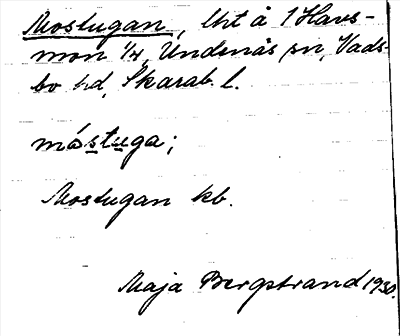 Mostugan, lht å 1 Havs-
mon 1/4, Undenäs sn, Vads-
bo hd, Skarab. l.
måstuga;
Mostugan kb.
Maja Bergstrand 1930.